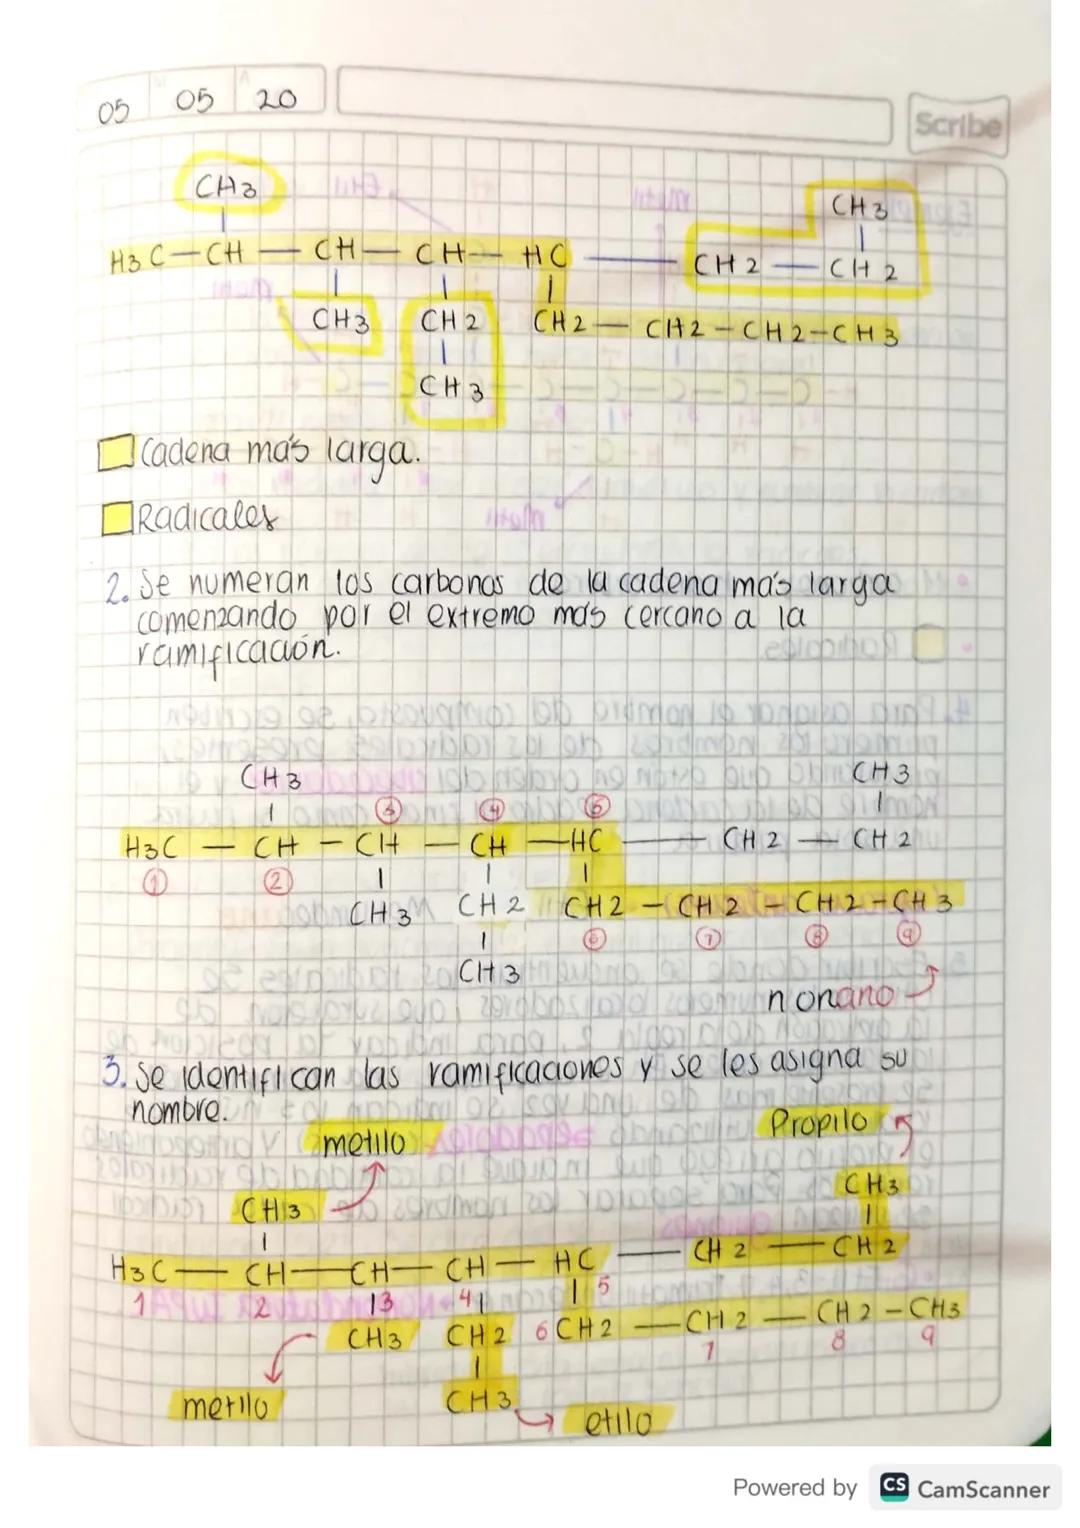 05 05 20
Scribe
CH3 CH3
H3C — CH — CH — CH — HC — CH2 — CH2
CH3 CH2 CH2 — CH2 — CH2 — CH3
CH3
Cadena más larga.
Radicales
2. Se numeran los carbonos de la cadena más larga
comenzando por el extremo más cercano a la
ramificación.
CH3 CH3
③ ④ ⑤
H3C — CH — CH — CH — HC — CH2 — CH2
① ②
CH3 CH2 CH2 — CH2 — CH2 — CH3
⑥ ⑦ ⑧ ⑨
CH3
nonano
3. Se identifican las ramificaciones y se les asigna su
nombre.
metilo Propilo
CH3 CH3
H3C — CH — CH — CH — HC — CH2 — CH2
1 2 3 4 5
CH3 CH2 6 CH2 — CH2 — CH2 — CH3
7 8 9
metilo CH3 etilo
Powered by CS CamScanner